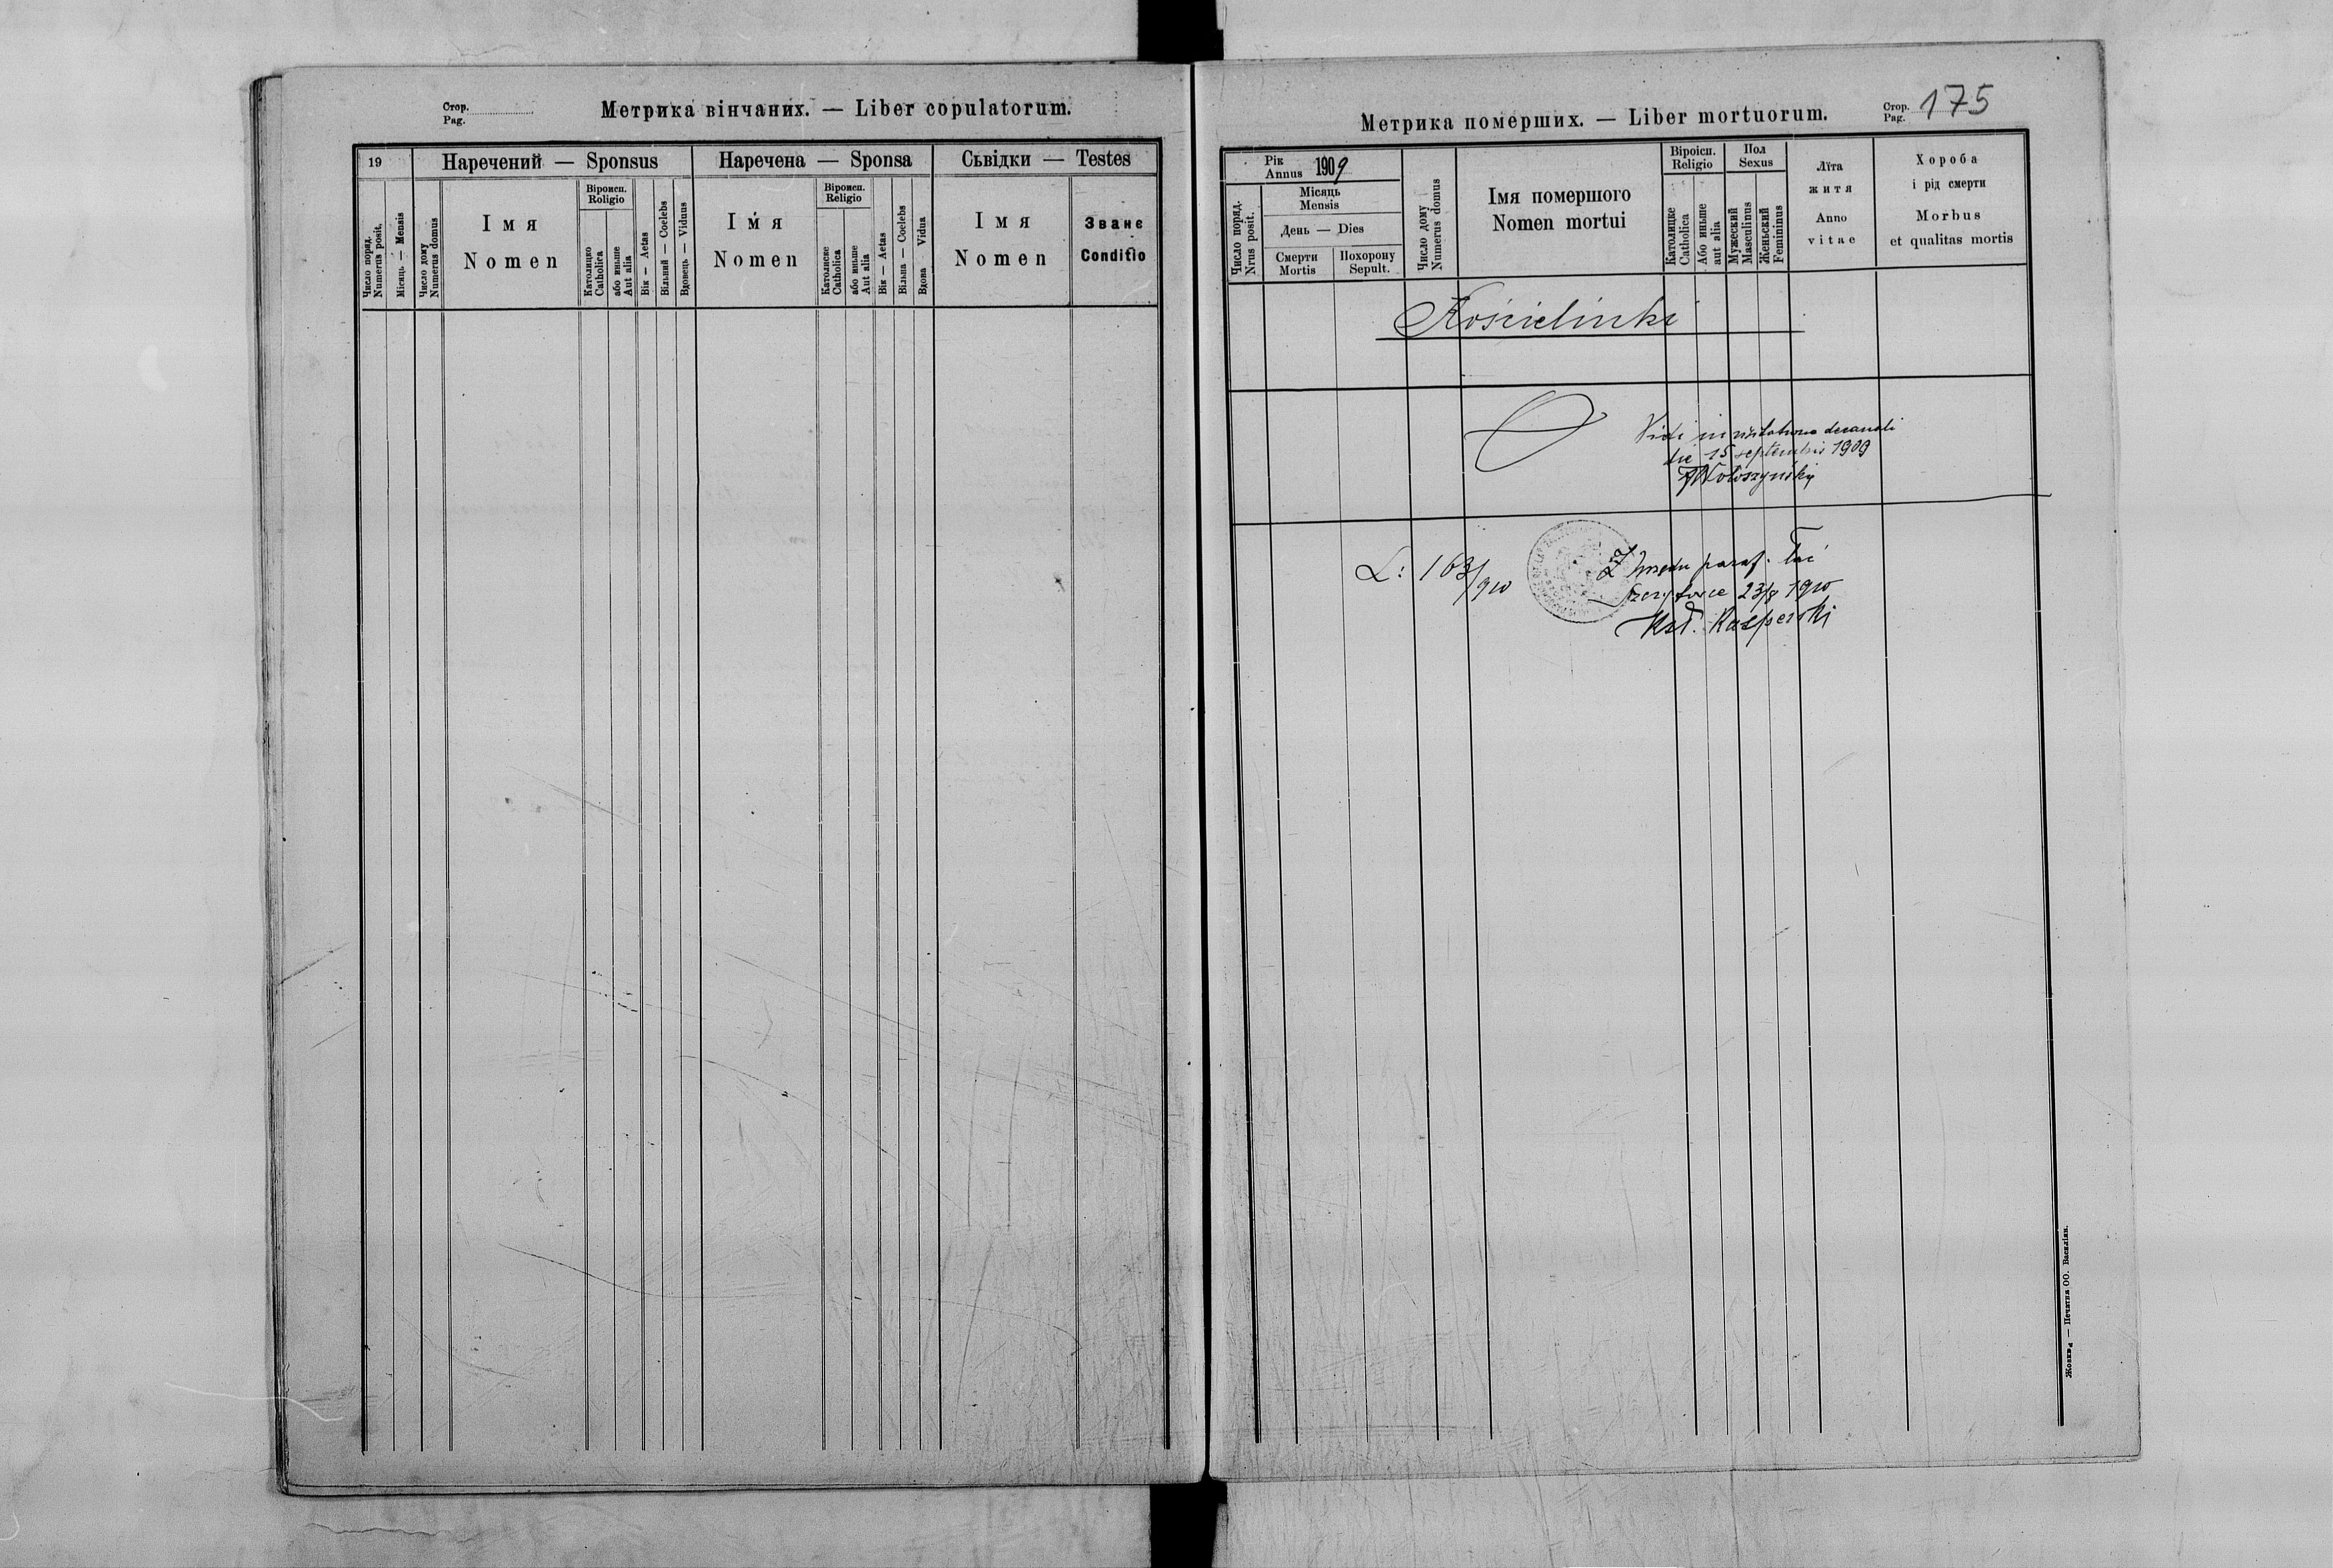 Стор.
Pag.
Метрика вінчаних. — Liber copulatorum.
19
Наречений — Sponsus
Наречена — Sponsa
Сьвідки — Testes
Число поряд.
Numerus posit.
Місяць — Mensis
Число дому
Numerus domus
Імя
Nomen
Віроисп.
Roligio
Католицко
Catholica
або иньше
Aut alia
Вік — Aetas
Вільний — Coelebs
Вдовець — Viduus
Імя
Nomen
Віроисп.
Religio
Католиске
Catholica
або иньше
Aut alia
Вік — Aetas
Вільна — Coelebs
Вдова Vidua
Імя
Nomen
Званє
Conditio
Метрика померших. — Liber mortuorum.
Стор.
Pag. 175
Рік
Annus 1909
Число поряд.
Nrus posit.
Місяць
Mensis
День — Dies
Смерти
Mortis
Похорону
Sepult.
Число дому
Numerus domus
Імя помершого
Nomen mortui
Віроісп.
Religio
Католицке
Catholica
Або иньше
aut alia
Пол
Sexus
Мужеский
Masculinus
Женьский
Femininus
Лїта
житя
Anno
vitae
Хороба
і рід смерти
Morbus
et qualitas mortis
Kościelinki
Vidi in visitatione decanali
die 15 septembris 1909
Wołoszyński
L: 163/910
Z Urzędu paraf. łać
23/8 1910
Kasperski
Жовква — Печатня ОО. Василіян.